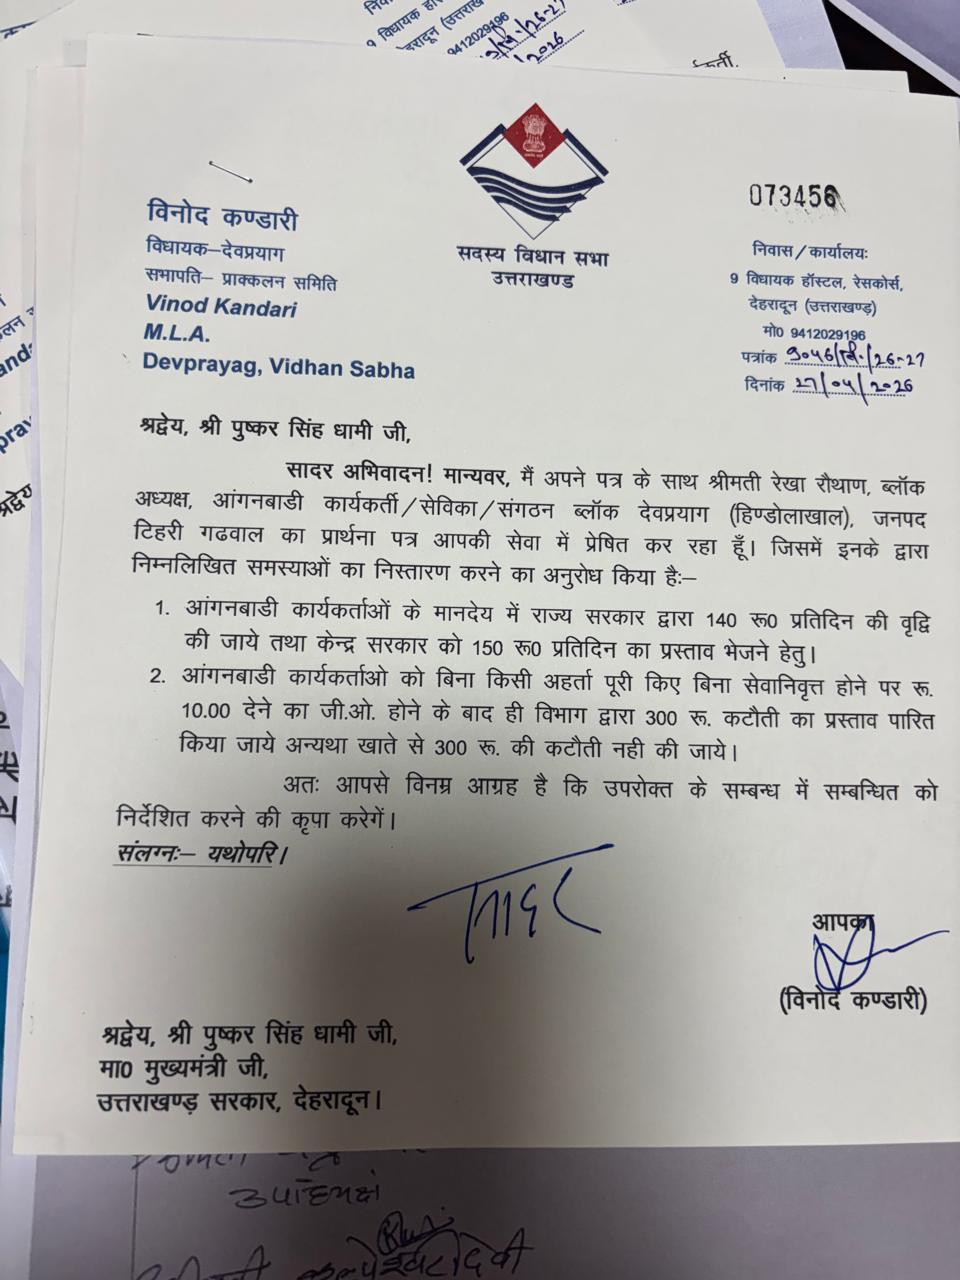 073456
विनोद कण्डारी
विधायक–देवप्रयाग
सभापति– प्राक्कलन समिति
Vinod Kandari
M.L.A.
Devprayag, Vidhan Sabha
सदस्य विधान सभा
उत्तराखण्ड
निवास/कार्यालयः
9 विधायक हॉस्टल, रेसकोर्स,
देहरादून (उत्तराखण्ड)
मो0 9412029196
पत्रांक १०५६/वि./26-27
दिनांक 27/04/2026
श्रद्वेय, श्री पुष्कर सिंह धामी जी,
सादर अभिवादन! मान्यवर, मैं अपने पत्र के साथ श्रीमती रेखा रौथाण, ब्लॉक
अध्यक्ष, आंगनबाडी कार्यकर्ती/सेविका/संगठन ब्लॉक देवप्रयाग (हिण्डोलाखाल), जनपद
टिहरी गढवाल का प्रार्थना पत्र आपकी सेवा में प्रेषित कर रहा हूँ। जिसमें इनके द्वारा
निम्नलिखित समस्याओं का निस्तारण करने का अनुरोध किया हैः–
1. आंगनबाडी कार्यकर्ताओं के मानदेय में राज्य सरकार द्वारा 140 रू0 प्रतिदिन की वृद्वि
की जाये तथा केन्द्र सरकार को 150 रू0 प्रतिदिन का प्रस्ताव भेजने हेतु।
2. आंगनबाडी कार्यकर्ताओ को बिना किसी अहर्ता पूरी किए बिना सेवानिवृत्त होने पर रू.
10.00 देने का जी.ओ. होने के बाद ही विभाग द्वारा 300 रू. कटौती का प्रस्ताव पारित
किया जाये अन्यथा खाते से 300 रू. की कटौती नही की जाये।
अतः आपसे विनम्र आग्रह है कि उपरोक्त के सम्बन्ध में सम्बन्धित को
निर्देशित करने की कृपा करेगें।
संलग्नः– यथोपरि।
सादर
आपका
(विनोद कण्डारी)
श्रद्वेय, श्री पुष्कर सिंह धामी जी,
मा0 मुख्यमंत्री जी,
उत्तराखण्ड़ सरकार, देहरादून।